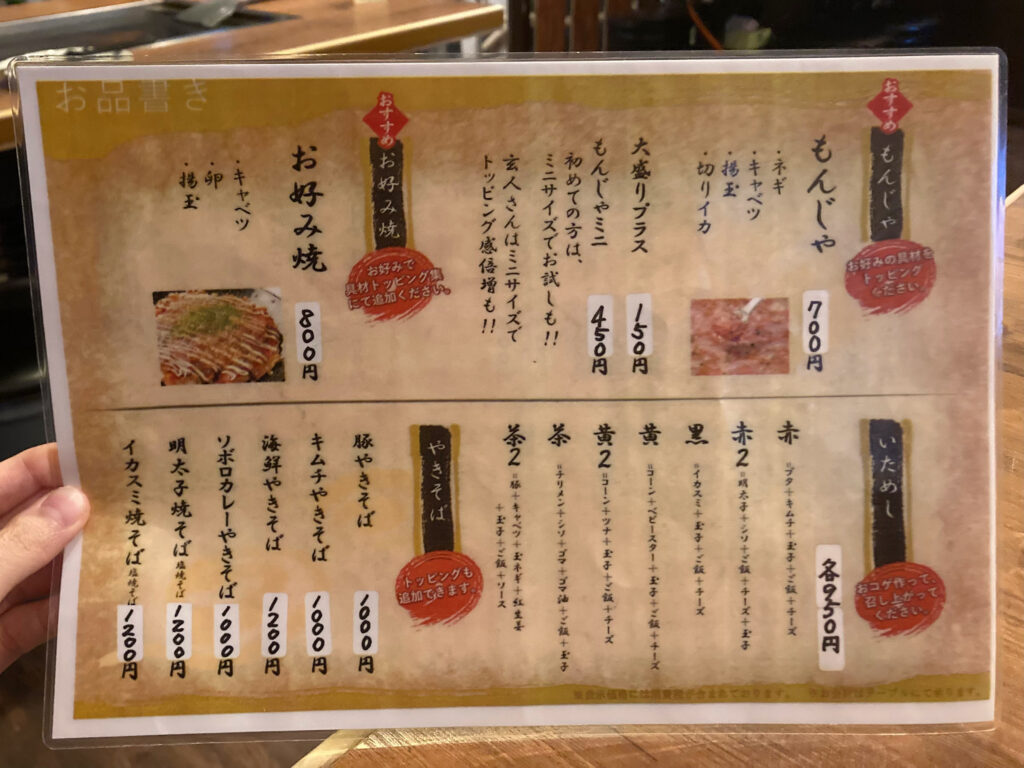 お品書き
おすすめ
もんじゃ
お好みの具材を
トッピング
ください。
もんじゃ
700円
・ネギ
・キャベツ
・揚玉
・切りイカ
大盛りプラス
150円
もんじゃミニ
450円
初めての方は、
ミニサイズでお試しも!!
玄人さんはミニサイズで
トッピング感倍増も!!
おすすめ
お好み焼
お好みで
具材トッピング集
にて追加ください。
お好み焼
800円
・キャベツ
・卵
・揚玉
いためし
おコゲ作って、
召し上がって
ください。
各950円
赤 =ブタ+キムチ+玉子+ご飯+チーズ
赤2 =明太子+シソ+ご飯+チーズ+玉子
黒 =イカスミ+玉子+ご飯+チーズ
黄 =コーン+ベビースター+玉子+ご飯+チーズ
黄2 =コーン+ツナ+玉子+ご飯+チーズ
茶 =チリメン+シソ+ゴマ+ゴマ油+ご飯+玉子
茶2 =豚+キャベツ+玉ネギ+紅生姜
+玉子+ご飯+ソース
やきそば
トッピングも
追加できます。
豚やきそば 1000円
キムチやきそば 1000円
海鮮やきそば 1200円
ソボロカレーやきそば 1000円
明太子焼そば 塩焼そば 1200円
イカスミ焼そば 塩焼そば 1200円
※表示価格には消費税が含まれております。 ※お会計はテーブルにて承ります。